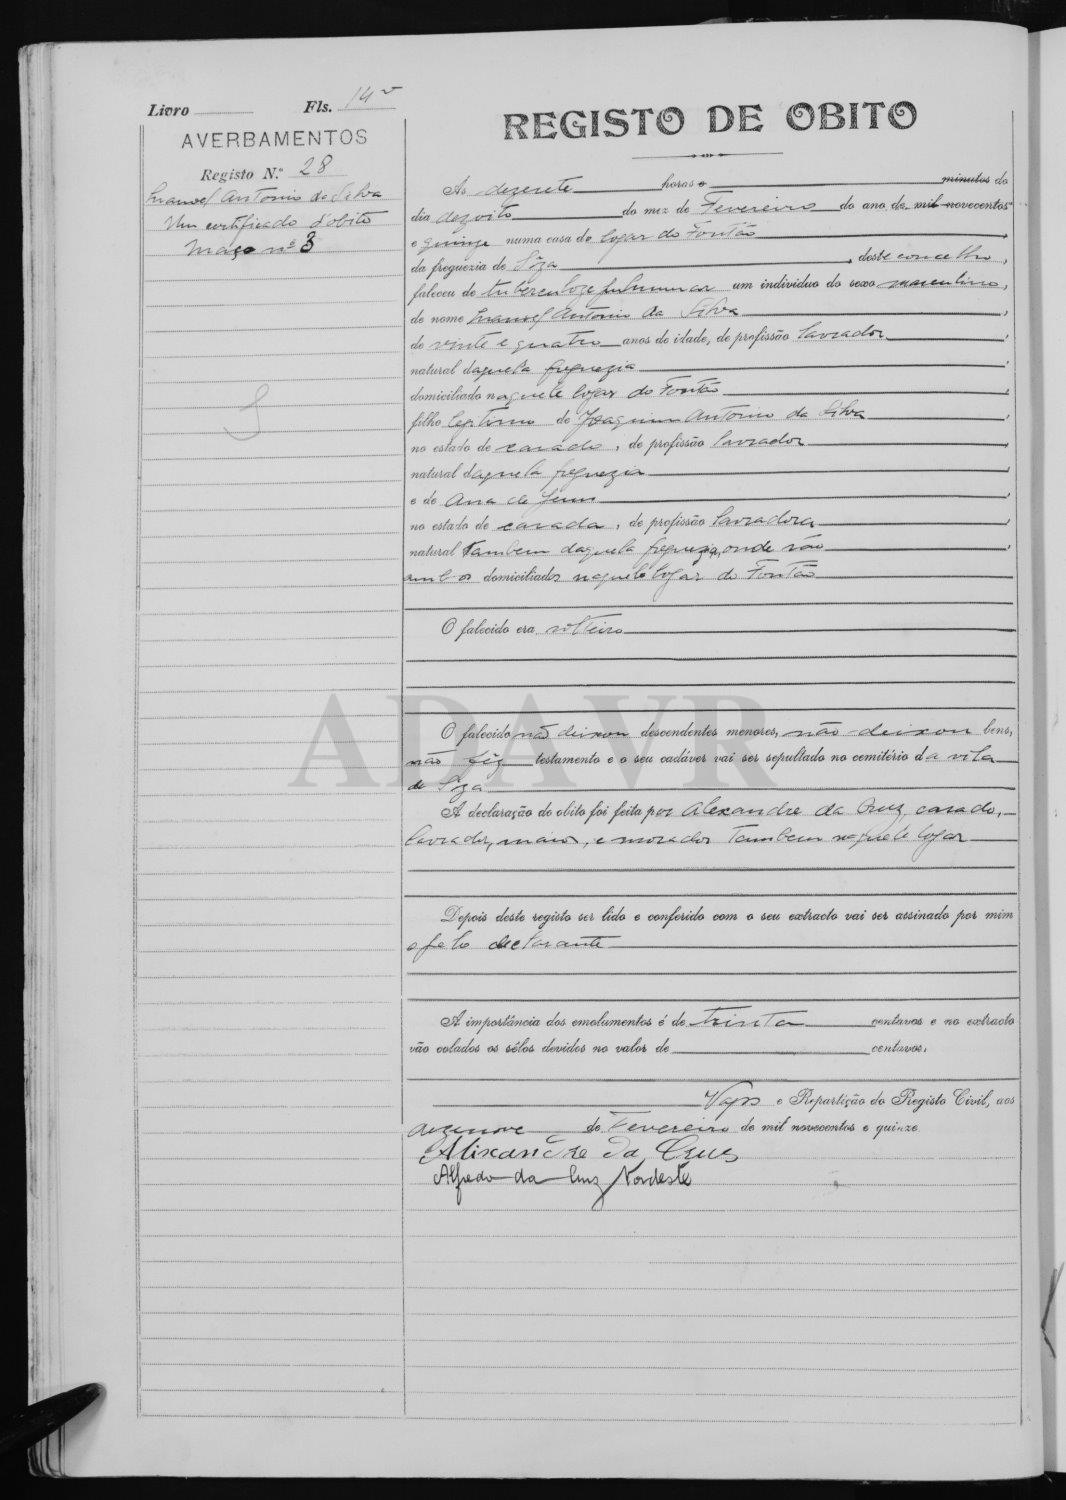 Livro Fls. 14v
REGISTO DE OBITO
AVERBAMENTOS
Registo N.º 28
Manoel Antonio da Silva
Um certificado d'obito
Maço nº 3
Ás dezesete horas e minutos do
dia dezoito do mez de Fevereiro do ano de mil novecentos
e quinze numa casa do logar do Fontão
da freguezia de Sôza, deste concelho,
faleceu de tuberculoze pulmunar um individuo do sexo masculino,
de nome Manoel Antonio da Silva,
de vinte e quatro anos de idade, de profissão lavrador,
natural daquela freguezia,
domiciliado naquele logar do Fontão,
filho legitimo de Joaquim Antonio da Silva,
no estado de casado, de profissão lavrador,
natural daquela freguezia,
e de Ana de Jesus,
no estado de casada, de profissão lavradora,
natural tambem daquela freguezia, onde são,
ambos domiciliados naquele logar do Fontão
O falecido era solteiro
O falecido não deixou descendentes menores, não deixou bens,
não fêz testamento e o seu cadáver vai ser sepultado no cemitério da vila
de Sôza
A declaração do obito foi feita por Alexandre da Cruz, casado,
lavrador, maior, e morador tambem naquele logar
Depois deste registo ser lido e conferido com o seu extracto vai ser assinado por mim
e pelo declarante
A importância dos emolumentos é de trinta centavos e no extracto
vão colados os sêlos devidos no valor de centavos.
Vagos e Repartição do Registo Civil, aos
dezenove de Fevereiro de mil novecentos e quinze
Alixandre da Crus
Alfredo da Cruz Nordeste
ADAVR